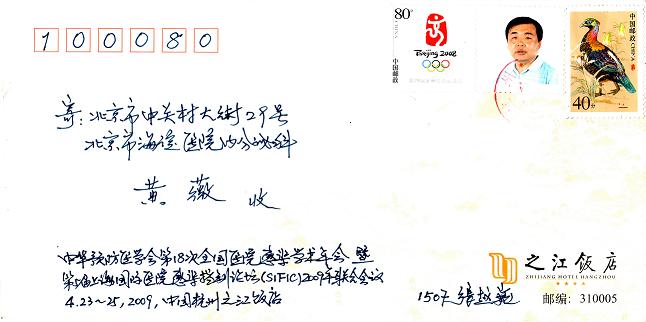 100080
80分
中国邮政
Beijing 2008
中国邮政 CHINA
40分
寄:北京市中关村大街29号
北京市海淀医院内分泌科
黄薇 收
中华预防医学会第18次全国医院感染学术年会暨
第5届上海国际医院感染控制论坛(SIFIC)2009年联合会议
4.23~25,2009,中国杭州之江饭店
之江饭店
ZHIJIANG HOTEL HANGZHOU
1507 张
邮编:310005